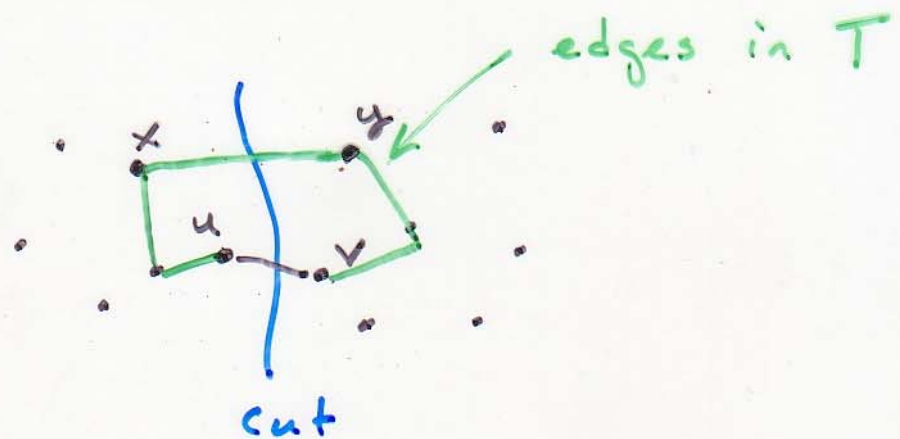 edges in T
x
y
u
v
cut